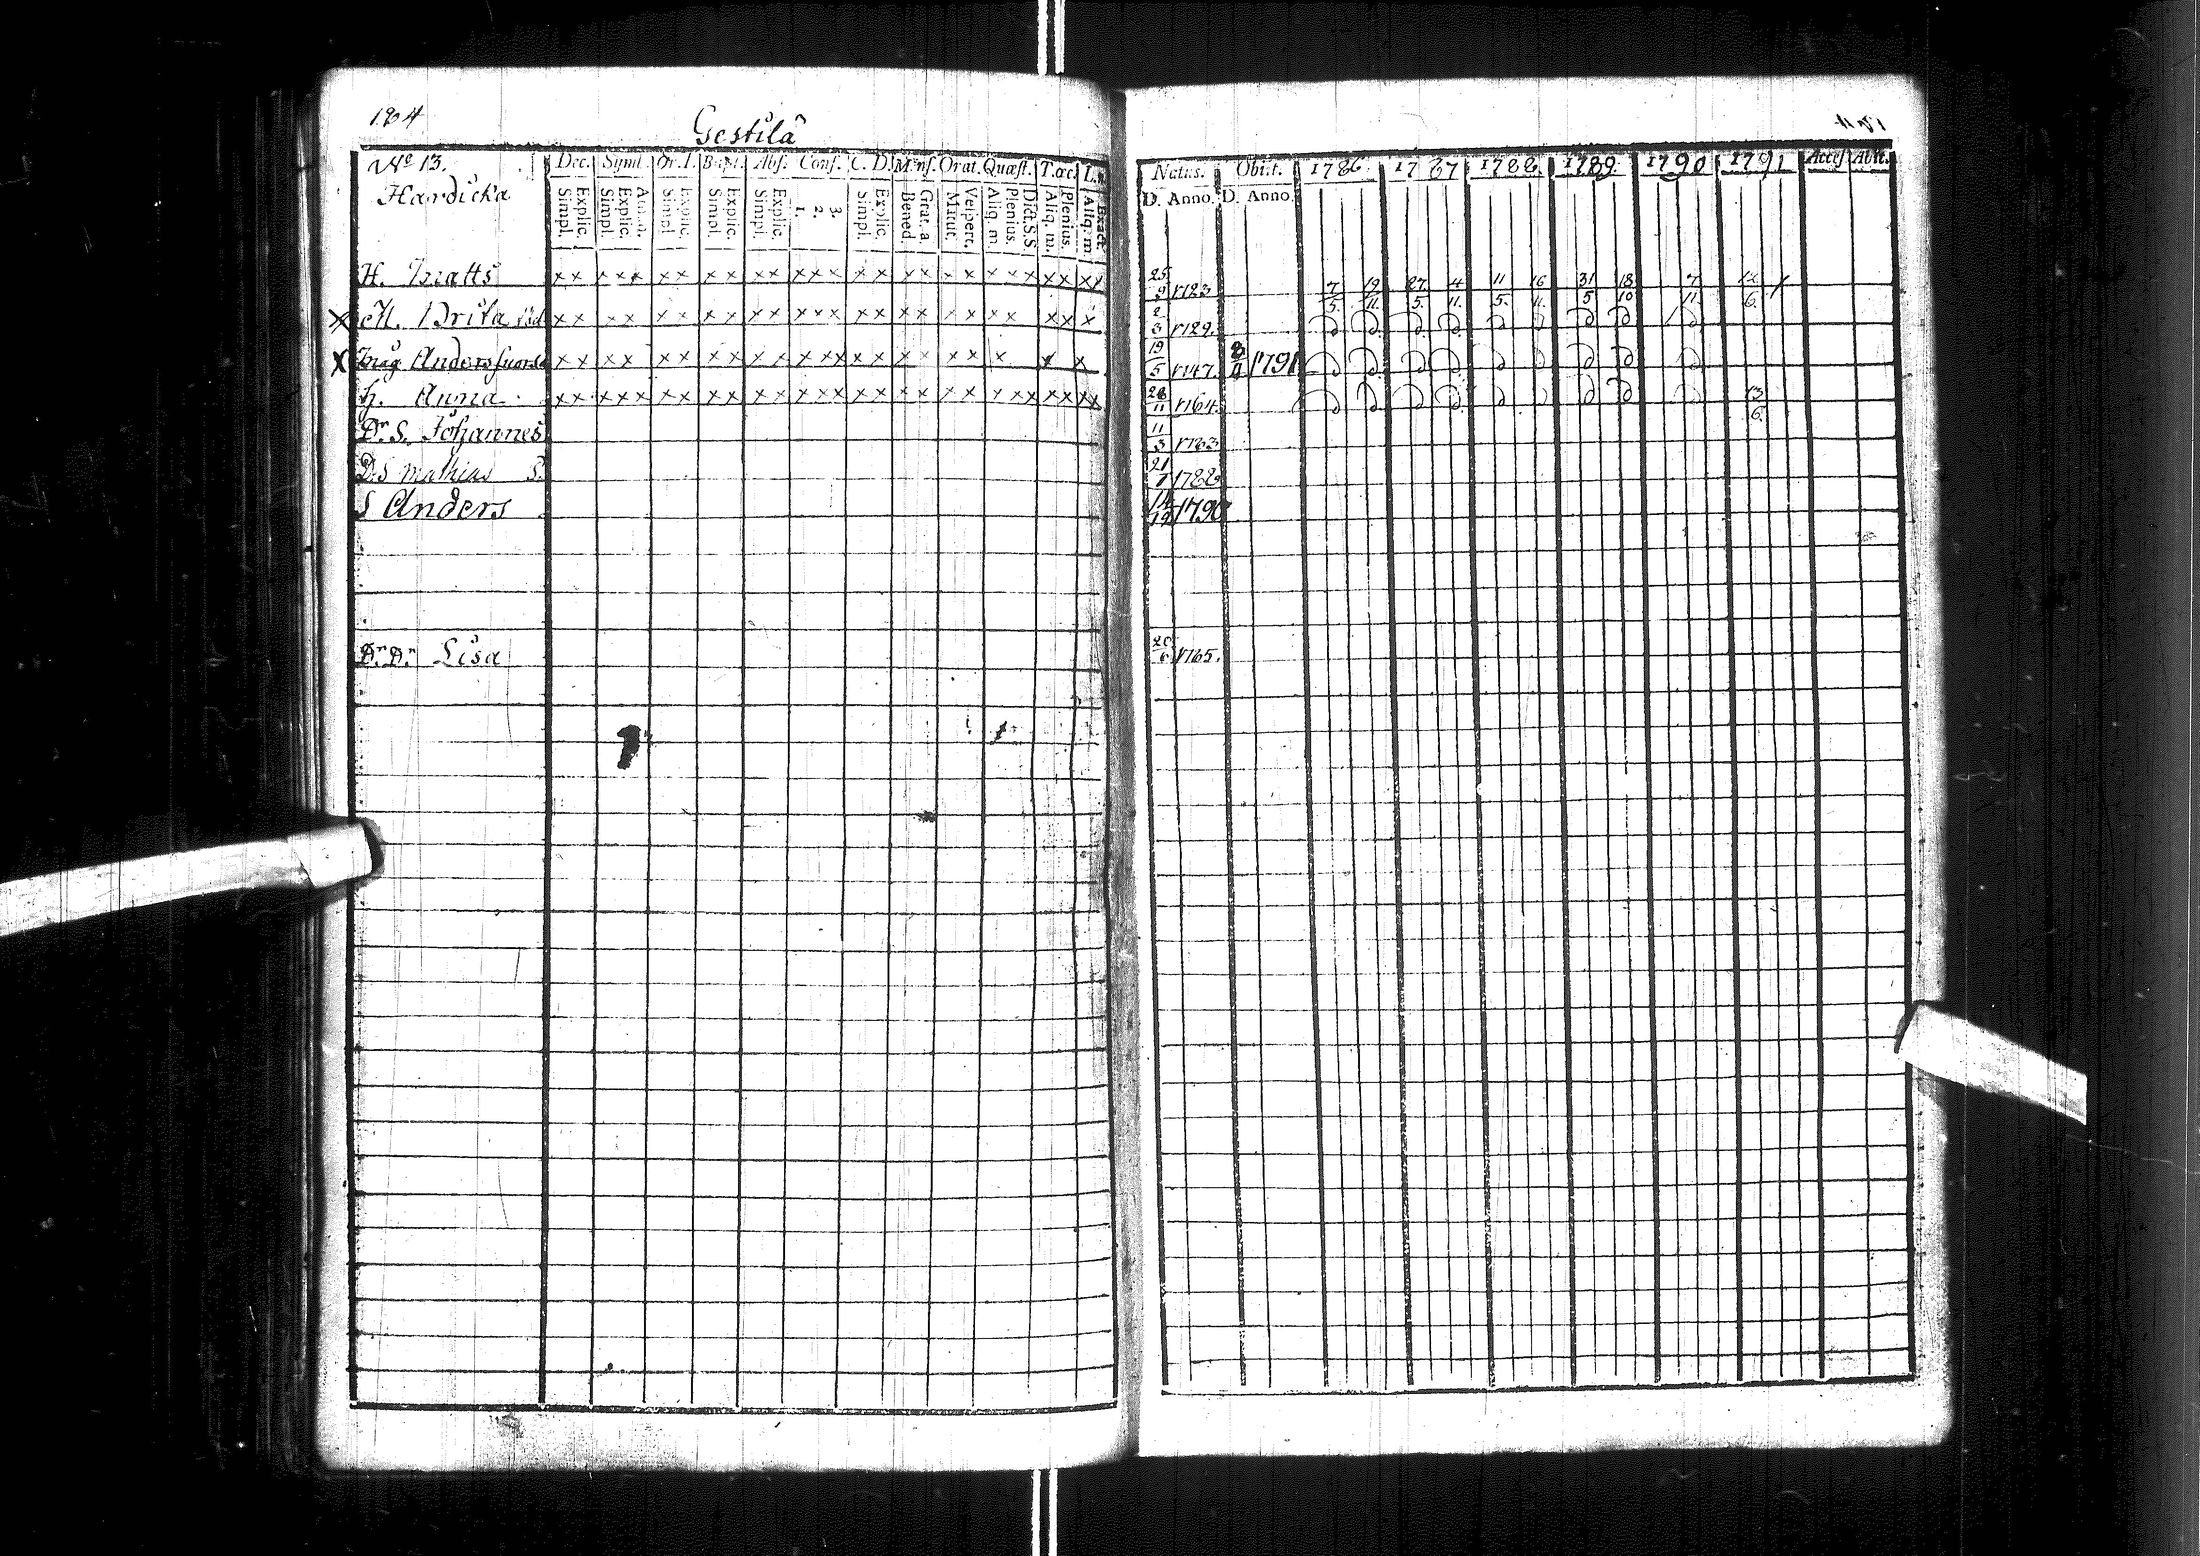 184
Gestilä
No 13.
Hardicka
Dec. Symb. Or. D. Bapt. Abs. Conf. C. D. Mens. Orat. Quæst. T. œc.
Simpl. Explic. Simpl. Explic. Simpl. Explic. Simpl. Explic. Simpl. Explic. 1. 2. 3. Simpl. Explic. Bened. Grat. a. Matut. Vespert. Aliq. m. Plenius. Dict. S. S. Aliq. m. Plenius. Aliq. m. Exact.
H. Matts x x x x x x x x x x x x x x x x x x x x x x x x x x x
x M. Brita x x x x x x x x x x x x x x x x x x x x x x x x
x Anders x x x x x x x x x x x x x x x x x x x x x x
h. Anna x x x x x x x x x x x x x x x x x x x x x x x x x x x
Dr. S. Johannes
D. S Mathias S.
S Anders
Dr. Dr. Lisa
Natus. Obiit. 1786. 1787 1788. 1789. 1790 1791 Acces Abit.
D. Anno. D. Anno.
25 7 19 27 4 11 16 31 18 7 12
9 1723 5. 11. 5. 11. 5. 11. 5 10 11. 6.
2
3 1729.
19 8
5 1747. 4 1791
28 13
11 1764. 6.
11
3 1783
21
7 1788
14
12 1790
20
6 1765.